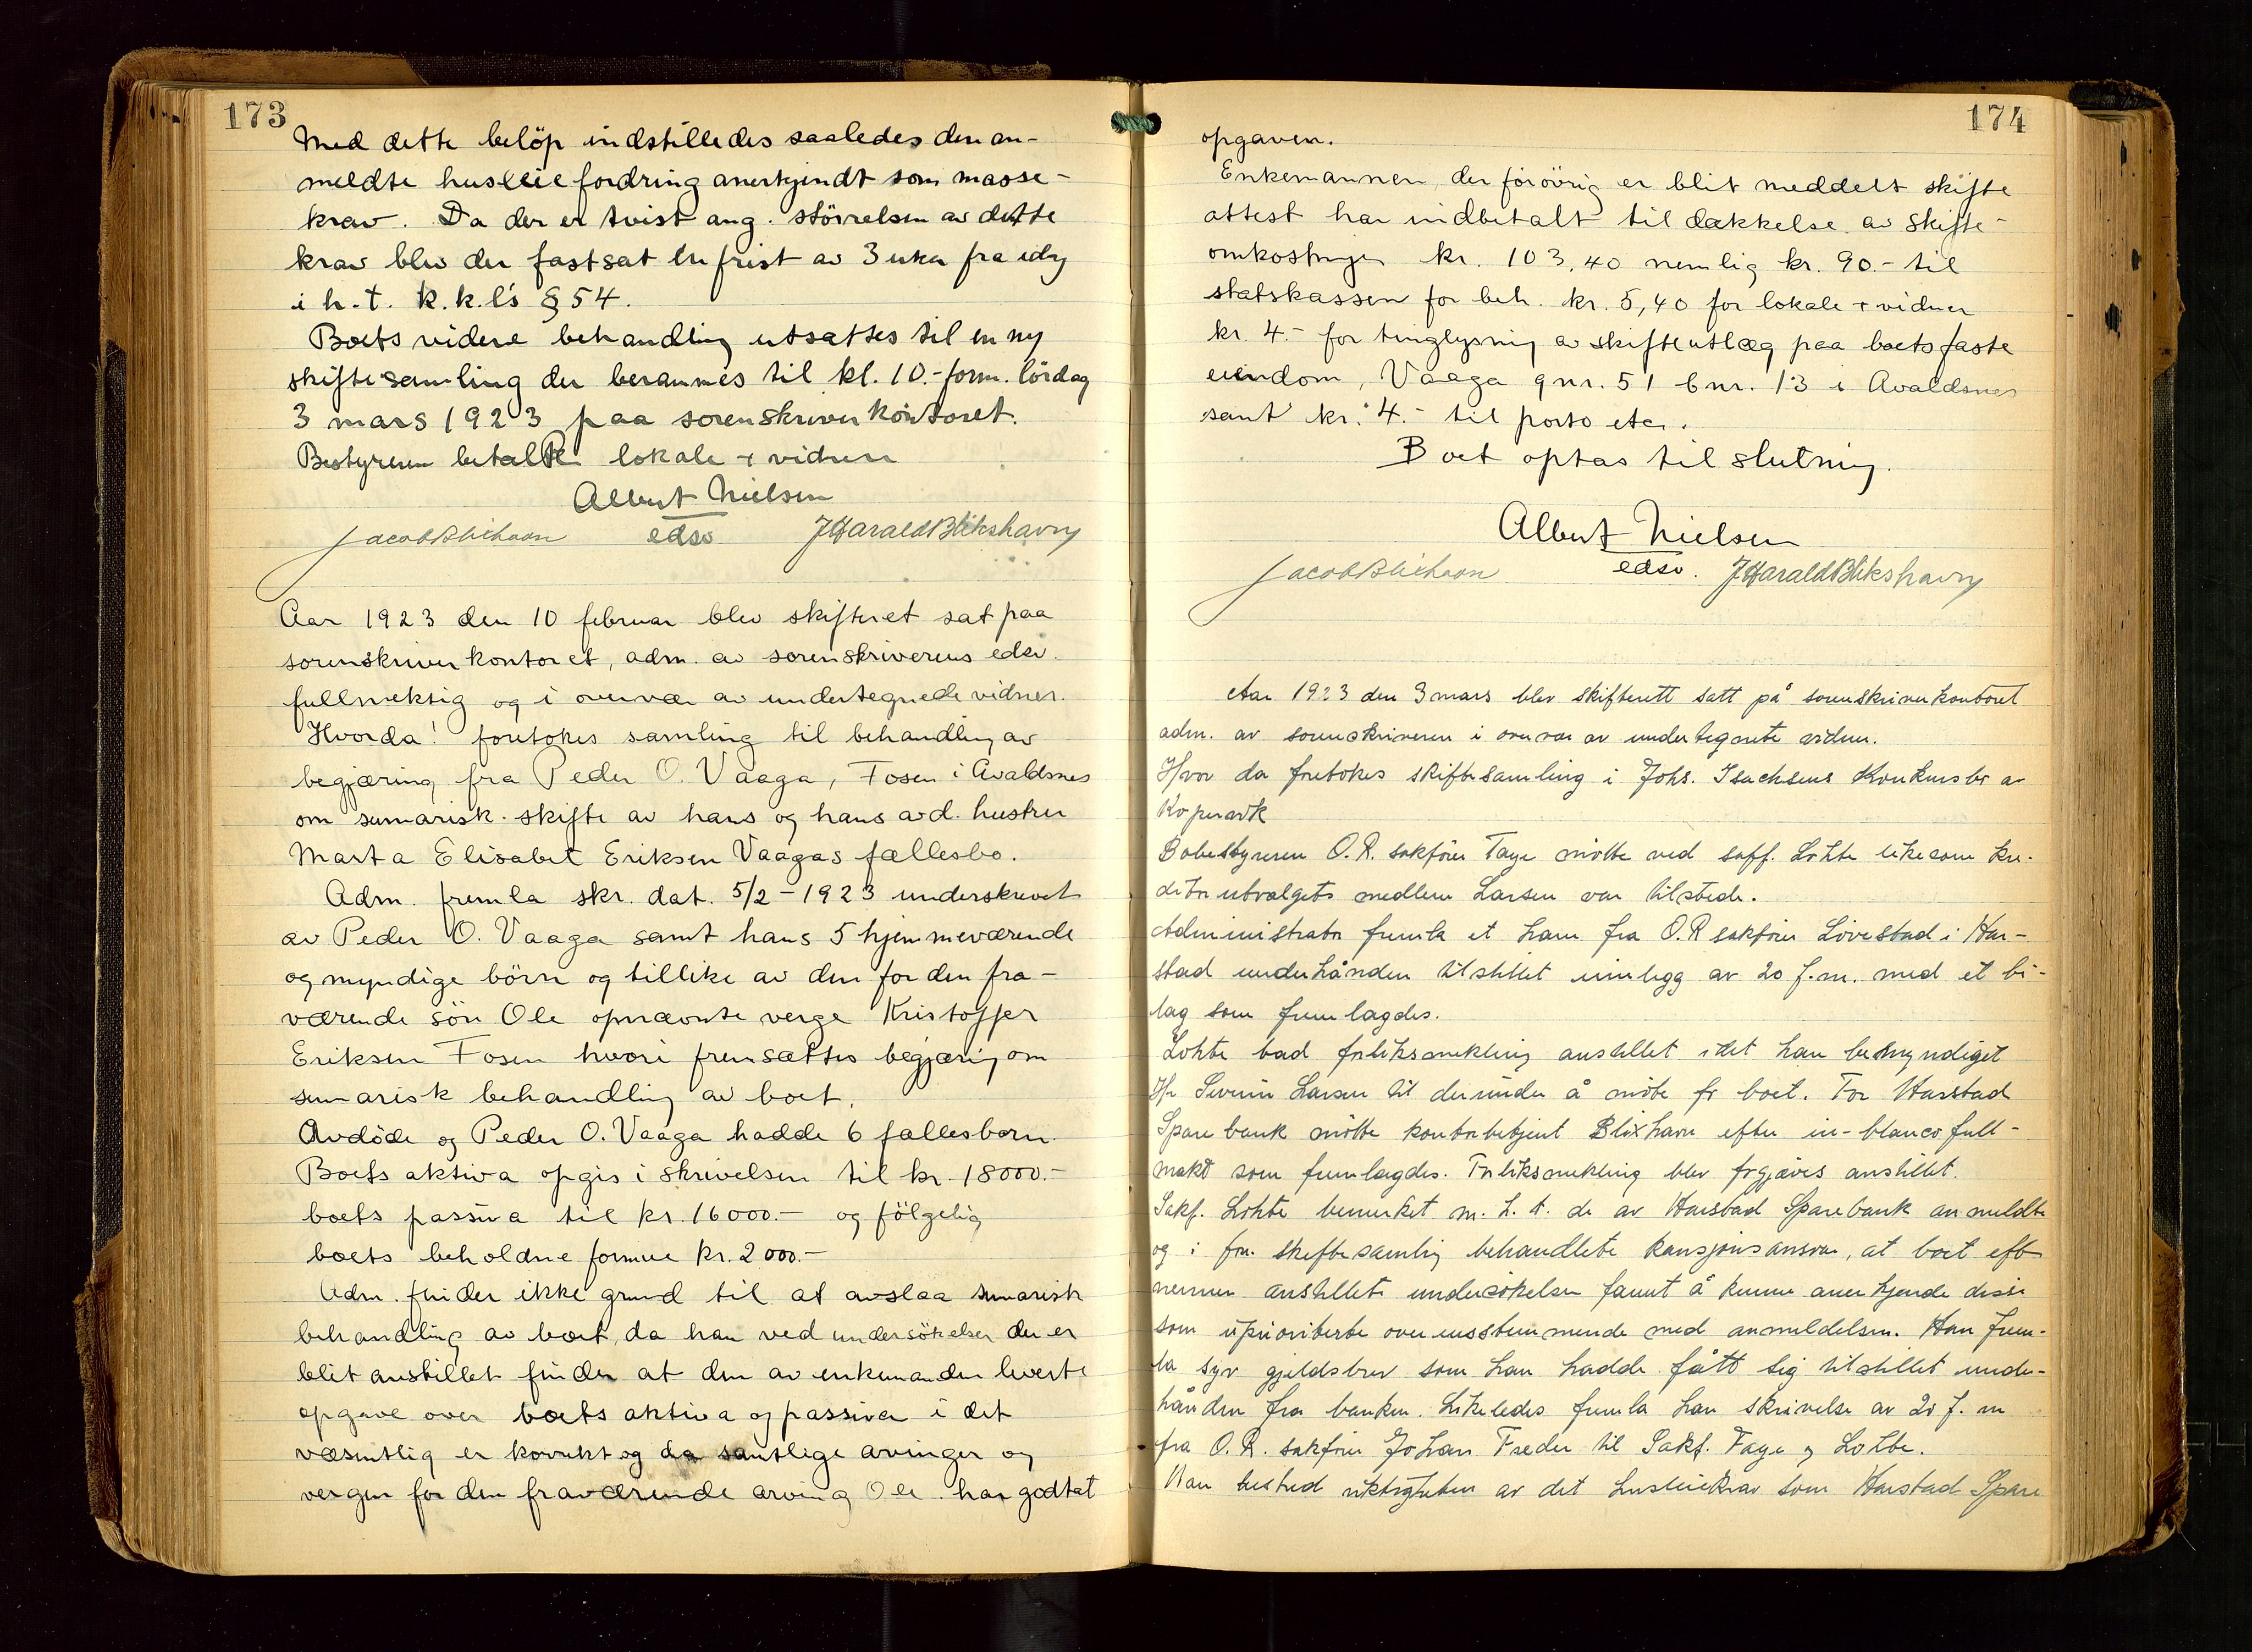 173
Med dette beløp indstilledes saaledes den an-
meldte husleiefordring anerkjendt som masse-
krav. Da der er tvist ang. størrelsen av dette
krav blev der fastsat en frist av 3 uker fra idag
i h.t. k.k.l's § 54.
Boets videre behandling utsattes til en ny
skiftesamling der berammes til kl. 10.- form. lördag
3 mars 1923 paa sorenskriverkontoret.
Bestyreren betalte lokale + vidner
Albert Nielsen
Jacob Blichaon edsv J Harald Blikshavn
Aar 1923 den 10 februar blev skifteret sat paa
sorenskriverkontoret, adm. av sorenskriverens edsv.
fullmektig og i overvær av undertegnede vidner.
Hvorda! foretokes samling til behandling av
begjæring fra Peder O. Vaaga, Fosen i Avaldsnes
om sumarisk skifte av hans og hans avd. hustru
Marta Elisabet Eriksen Vaagas fællesbo.
Adm. fremla skr. dat. 5/2-1923 underskrevet
av Peder O. Vaaga samt hans 5 hjemmeværende
og myndige börn og tillike av den for den fra-
værende sön Ole opnævnte verge Kristoffer
Eriksen Fosen hvori fremsættes begjæring om
sumarisk behandling av boet.
Avdöde og Peder O. Vaaga hadde 6 fællesbarn.
Boets aktiva opgis i skrivelsen til kr. 18000.-
boets passiva til kr. 16000.- og fölgelig
boets beholdne formue kr. 2000.-
Adm. finder ikke grund til at avslaa sumarisk
behandling av boet, da han ved undersökelser der er
blit anstillet finder at den av enkemanden leverte
opgave over boets aktiva og passiva i det
væsentlig er korrekt og da samtlige arvinger og
vergen for den fraværende arving Ole har godtat
174
opgaven.
Enkemannen, der forövrig er blit meddelt skifte
attest har indbetalt til dækkelse av skifte-
omkostninger kr. 103,40 nemlig kr. 90.- til
statskassen for beh. kr. 5,40 for lokale + vidner
kr. 4.- for tinglysning av skifteutlæg paa boets faste
eiendom, Vaaga gnr. 51 bnr. 13 i Avaldsnes
samt kr. 4.- til porto etc.
Boet optas til slutning.
Albert Nielsen
Jacob Blichaon edsv. J Harald Blikshavn
Aar 1923 den 3 mars blev skifterett satt på sorenskriverkontoret
adm. av sorenskriveren i overvær av undertegnete vidner.
Hvor da foretokes skiftesamling i Johs. Isachsens konkursbo av
Kopervik
Bobestyreren O.R. sakfører Faye møtte ved sakf. Lohte likesom kre-
ditorutvalgets medlem Larsen var tilstede.
Administrator fremla et ham fra O.R sakfører Løvestad i Har-
stad underhånden tilstillet innlegg av 20 f.m. med et bi-
lag som fremlagdes.
Lohte bad forliksmekling anstillet idet han bemyndiget
Hr Severin Larsen til derunder å møte for boet. For Harstad
Sparebank møtte kontorbetjent Blixhavn efter in-blanco full-
makt som fremlagdes. Forliksmekling blev forgjæves anstillet.
Sakf. Lohte bemerket m. h. t. de av Harstad Sparebank anmeldte
og i forr. skiftesamling behandlete kausjonsansvar, at boet efter
nermer anstillete undersøkelser fannt å kunne anerkjende disse
som uprioriterte overensstemmende med anmeldelsen. Han frem-
la syv gjeldsbrev som han hadde fått sig tilstillet under-
hånden fra banken. Likeledes fremla han skrivelse av 20 f. m
fra O.R. sakfører Johan Freder til Sakf. Faye og Lohte.
Han bestred riktigheten av det husleiekrav som Harstad Spare